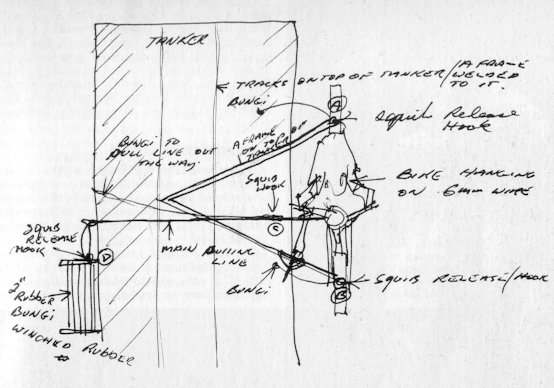 TANKER
TRACKS ON TOP OF TANKER / A FRAME
WELDED
TO IT.
BUNGI
A
Squib Release
Hook
A FRAME
ON TOP OF
TANKER
BUNGI TO
PULL LINE OUT
THE WAY
SQUIB
HOOK
BIKE HANGING
ON 6mm WIRE
SQUIB
RELEASE
HOOK
C
D
MAIN PULLING
LINE
BUNGI
SQUIB RELEASE/HOOK
B
2"
RUBBER
BUNGI
WINCHED RUBBER